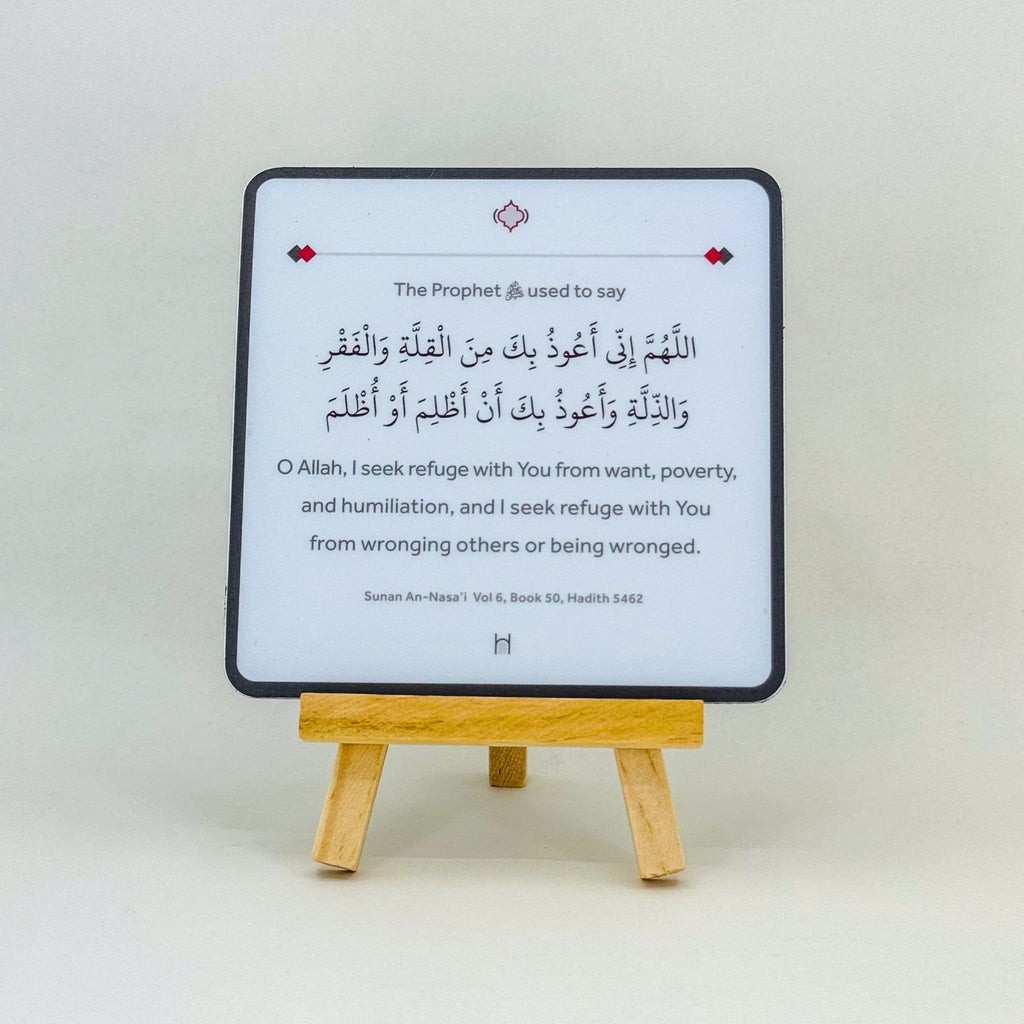 The Prophet ﷺ used to say
اللَّهُمَّ إِنِّي أَعُوذُ بِكَ مِنَ الْقِلَّةِ وَالْفَقْرِ
وَالذِّلَّةِ وَأَعُوذُ بِكَ أَنْ أَظْلِمَ أَوْ أُظْلَمَ
O Allah, I seek refuge with You from want, poverty,
and humiliation, and I seek refuge with You
from wronging others or being wronged.
Sunan An-Nasa'i Vol 6, Book 50, Hadith 5462